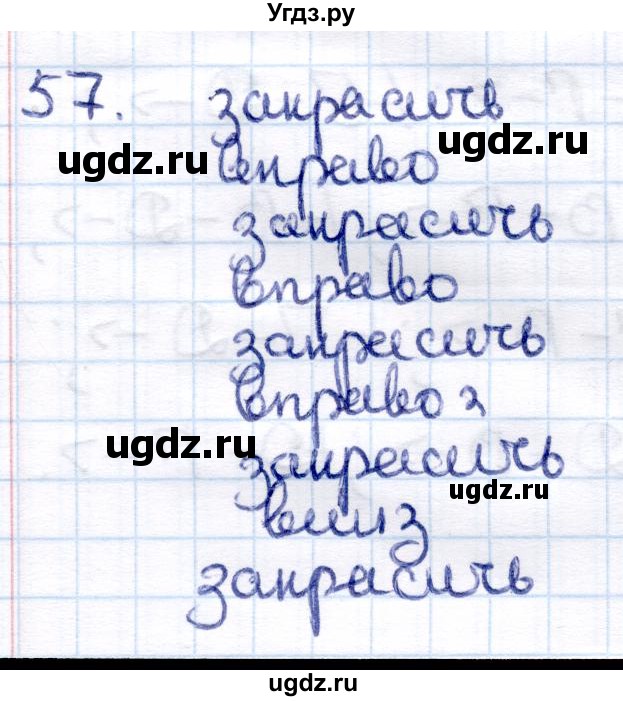 Угдз.ру
57. закрасить
ugdz.ru
ugdz.ru
вправо
закрасить
вправо
закрасить
вправо 2
ugdz.ru
закрасить
ugdz.ru
вниз
закрасить
ugdz.ru